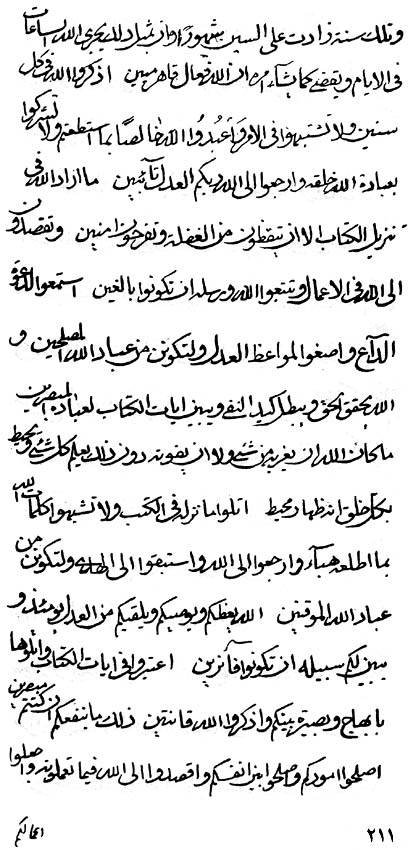 وتلك سنة زادت على السنين شهورًا وان مثل ذلك يجرى الله الساعات
فى الايام ويقضى كما يشاء امره ان الله فعال قاهر مبين اذكروا الله فى كل
سنين ولا تشتبهوا فى الامر فاعبدوا الله خالصًا بما استطعتم ولا تشركوا
بعبادة الله خلقه وارجعوا الى الله ربكم العدل تائبين ما اراد الله فى
تنزيل الكتاب الا ان تيقظون من الغفلة وتفرحون امنين وتقصدون
الى الله فى الاعمال وتتبعوا الله ورسله ان تكونوا بالغين استمعوا لدعوة
الداع واصغوا المواعظ العدل ولتكونن من عباد الله المصلحين و
الله يحقق الحق ويبطل كيد النفى ويبين ايات الكتاب لعباده المبصرين
ما كان الله ان يعزب من شئ ولا ان يفوته دون ذلك يعلم كل شئ ويحيط
بكل خلق انه ظهار محيط اتلوا ما نزل فى الكتب ولا تشبهوا كلمات الله
بما اطلعه هباء وارجعوا الى الله واستبقوا الى الهدى ولتكونن من
عباد الله الموقنين الله يعظكم ويوصيكم ويلقيكم من العدل يومئذ و
يبين لكم سبيله ان تكونوا فائزين اعتبروا فى ايات الكتاب واتلوها
بابهاج وبصيرة بينكم واذكروا الله قانتين ذلك ما ينفعكم ان كنتم مبصرين
اصلحوا اموركم وصلحوا بين انفسكم واقصدوا الى الله فيما تعملونه واصلوا
اعمالكم
٢١١